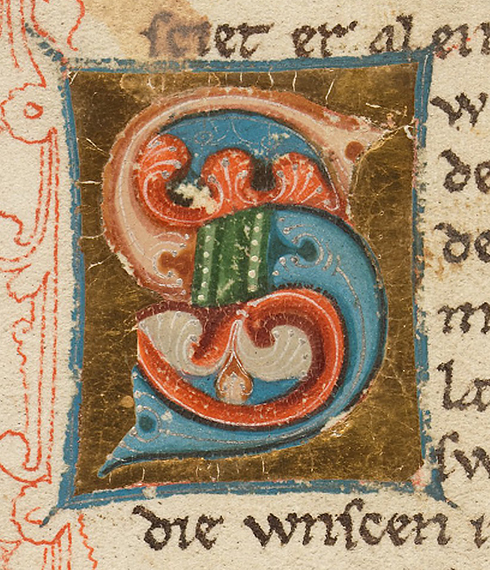 sciet er al ein
S
w
de
de
m
la
sw
die wnscen